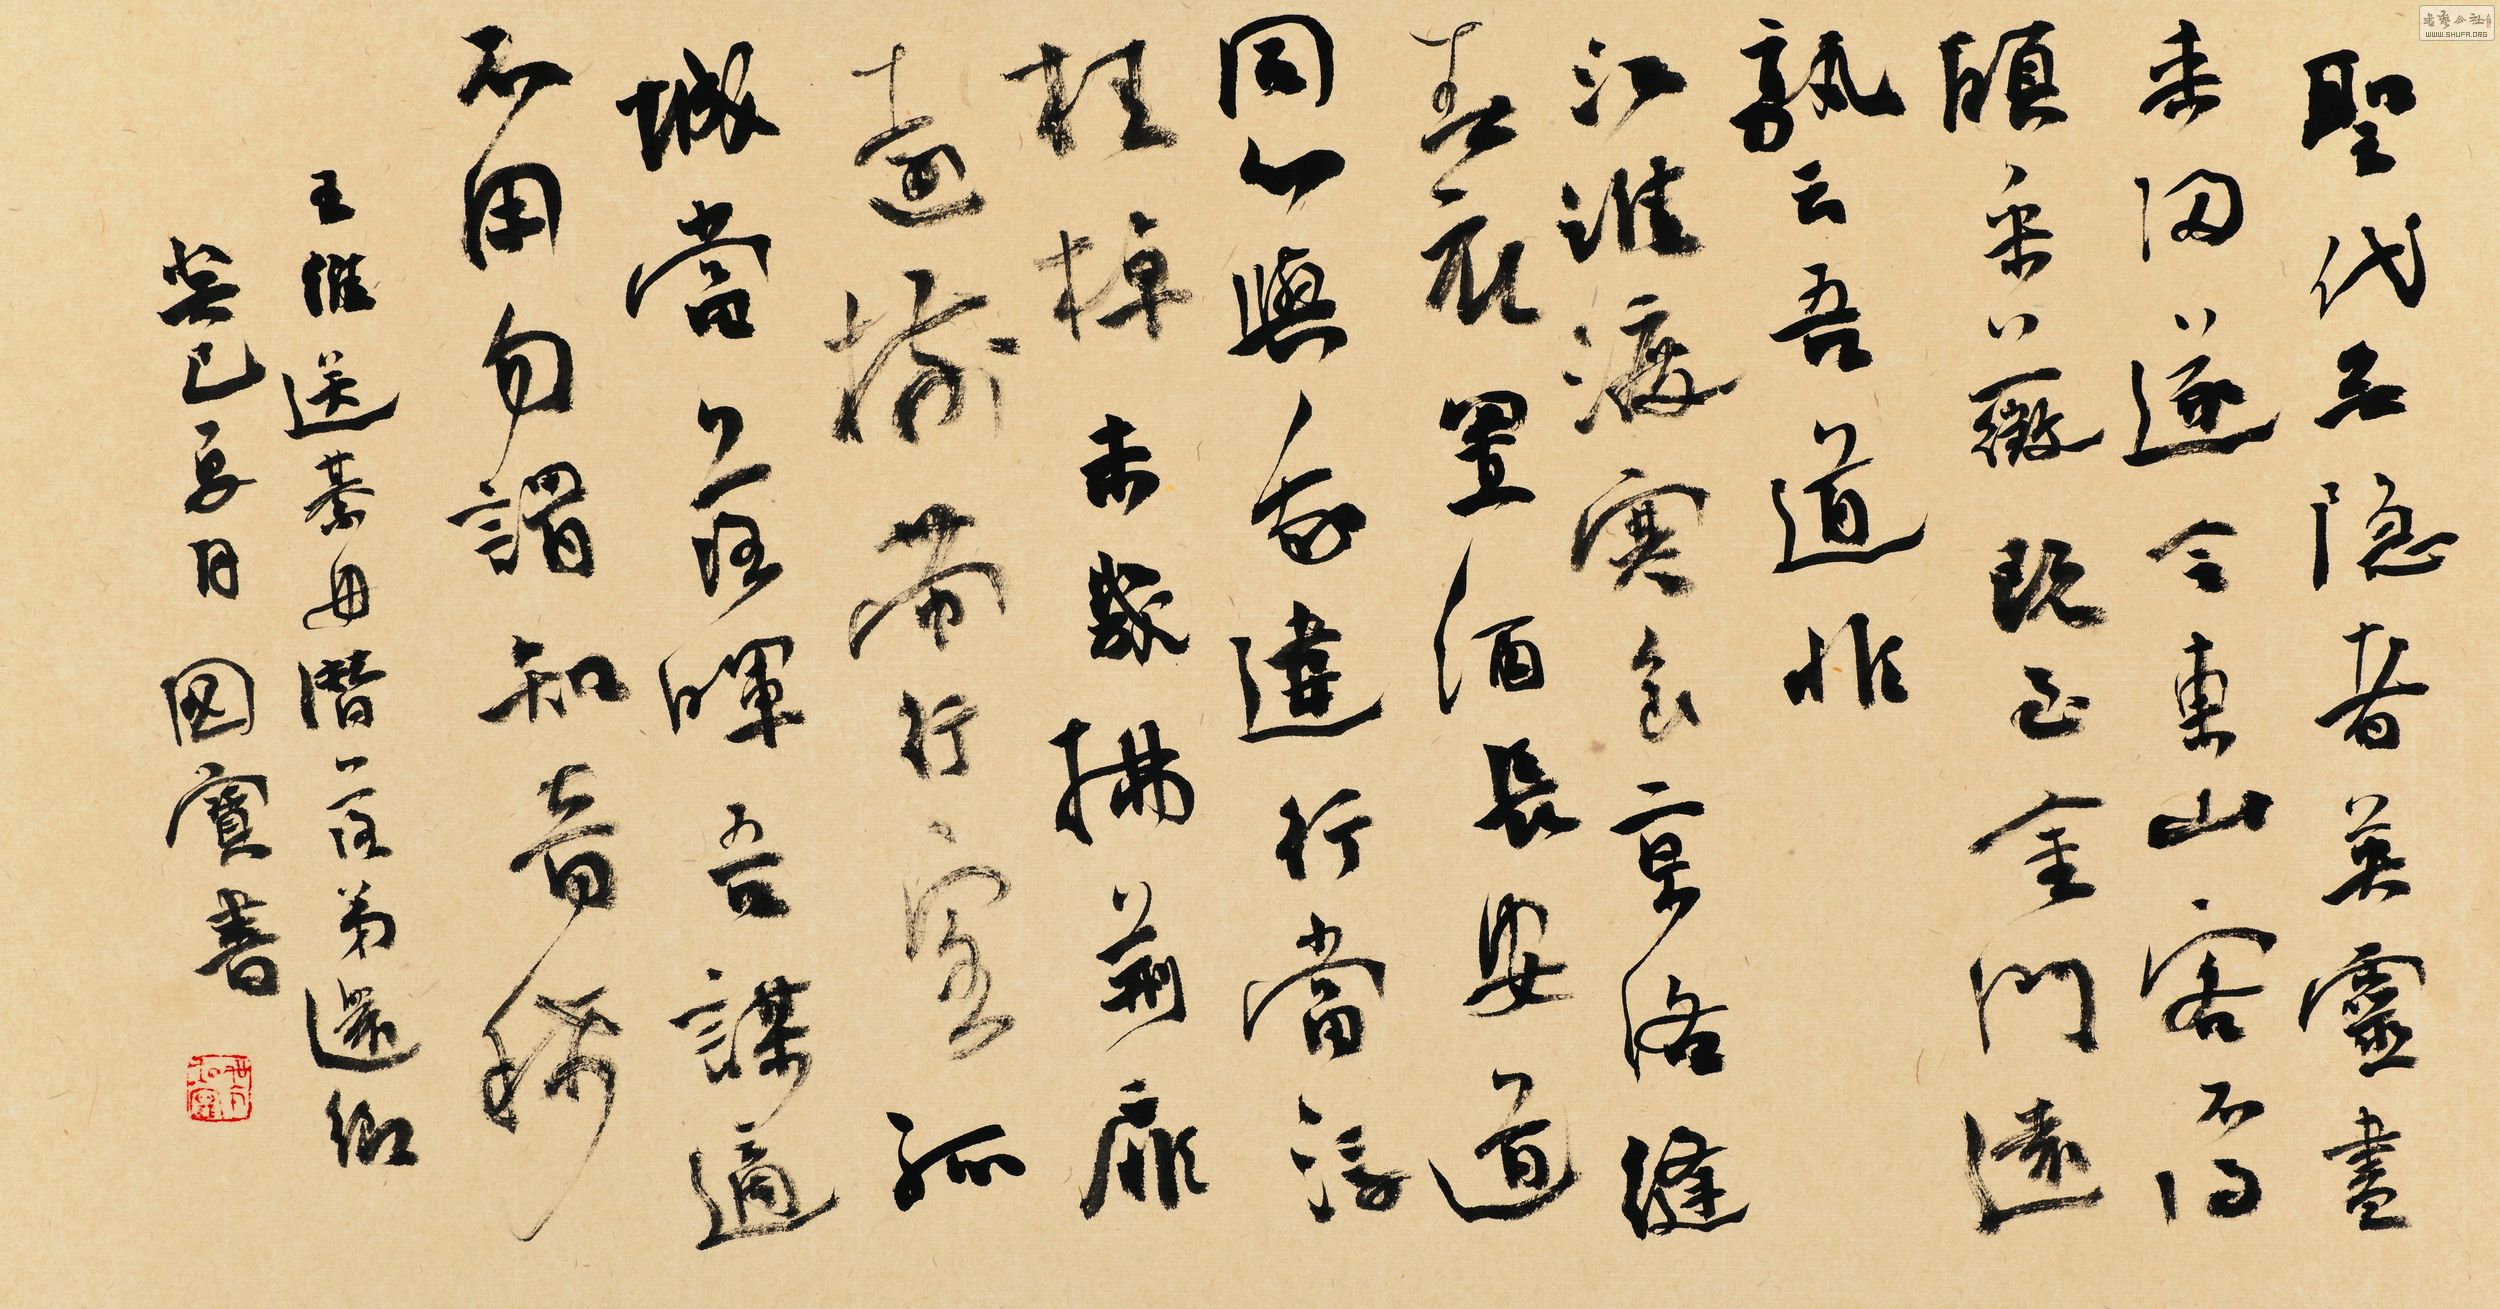 聖代無隱者英靈盡
来歸遂令東山客不得
頋采薇既至金門遠
孰云吾道非
江淮渡寒食京洛縫
春衣置酒長安道
同心與我違行當浮
桂棹未幾拂荆扉
遠樹帶行客孤
城當落暉吾謀適
不用勿謂知音稀
王維送綦毋潜落第還鄉
癸巳夏月國寶書
書藝公社
WWW.SHUFA.ORG